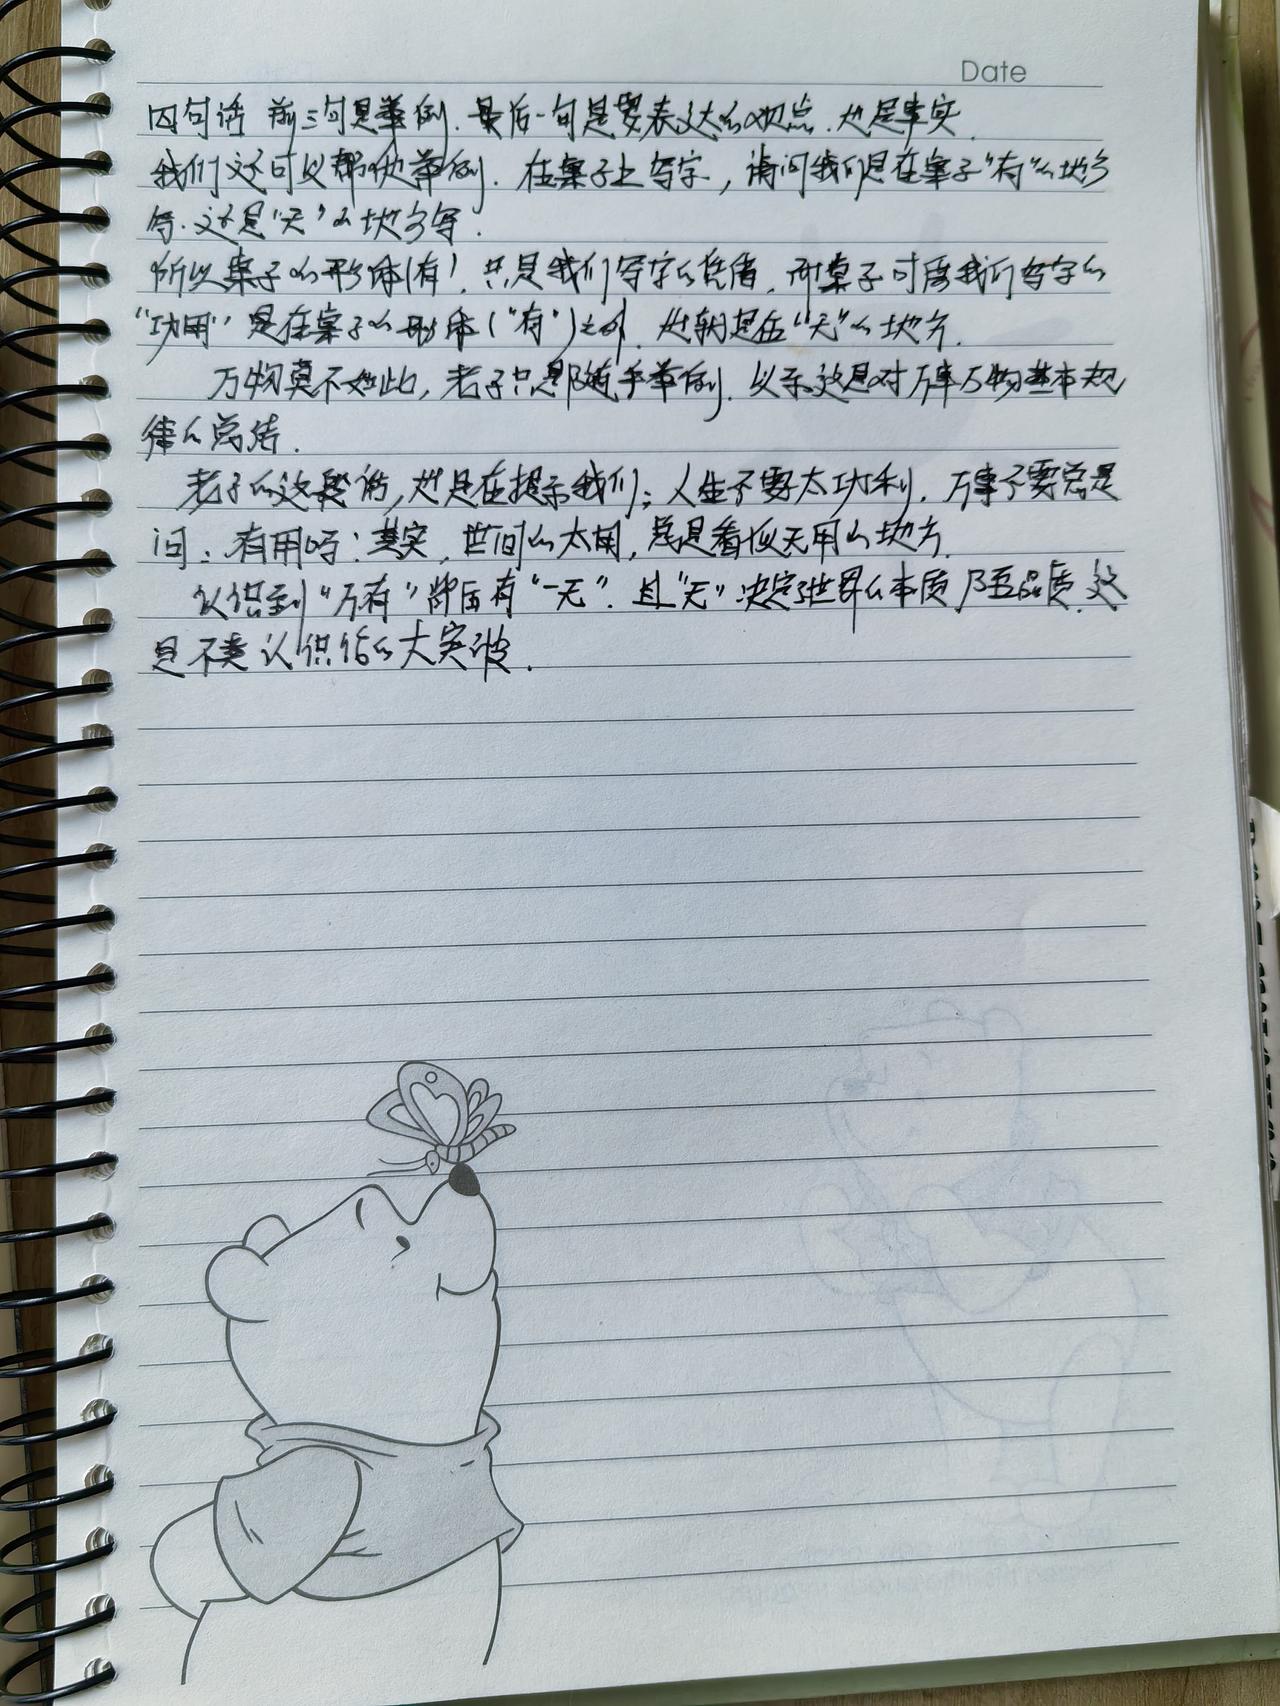 Date
四句话 前三句是举例.最后一句是要表达的观点.也是事实.
我们还可以帮他举例.在桌子上写字,请问我们是在桌子"有"的地方
写.还是"无"的地方写.
所以桌子的形体(有),只是我们写字的凭借,而桌子可居我们写字的
"功用"是在桌子的形体("有")之外.也就是在"无"的地方.
万物莫不如此,老子只是随手举例.以示这是对万事万物基本规
律的总结.
老子的这段话,也是在提示我们:人生不要太功利.万事不要总是
问:有用吗?其实,世间的大用,总是看似无用的地方.
认识到"万有"背后有"一无".且"无"决定了世界的本质乃至品质.这
是不类认识论的大突破.